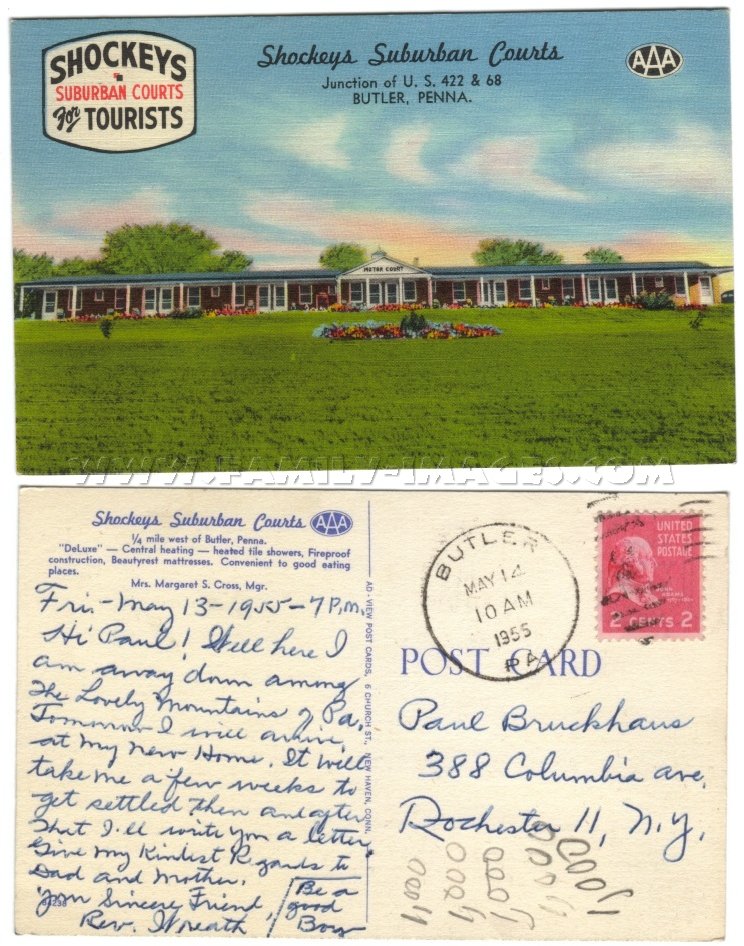 SHOCKEYS
SUBURBAN COURTS
for TOURISTS
Shockeys Suburban Courts
Junction of U. S. 422 & 68
BUTLER, PENNA.
AAA
MOTOR COURT
WWW.FAMILY-IMAGES.COM
Shockeys Suburban Courts AAA
¼ mile west of Butler, Penna.
"DeLuxe" — Central heating — heated tile showers, Fireproof
construction, Beautyrest mattresses. Convenient to good eating
places.
Mrs. Margaret S. Cross, Mgr.
Fri-May 13-1955-7 P.m.
Hi Paul! Well here I
am away down among
The Lovely Mountains of Pa.
Tomorrow I will arrive
at my New Home. It will
take me a few weeks to
get settled then and after
That I'll write you a letter
Give my Kindest Regards to
Dad and Mother.
Your Sincere Friend,
Rev. Wreath
Be a
good
Boy
AD-VIEW POST CARDS, 6 CHURCH ST., NEW HAVEN, CONN.
BUTLER
MAY 14
10 AM
1955
PA
UNITED
STATES
POSTAGE
JOHN
ADAMS
2 CENTS 2
POST CARD
Paul Bruckhaus
388 Columbia ave,
Rochester 11, N.Y.